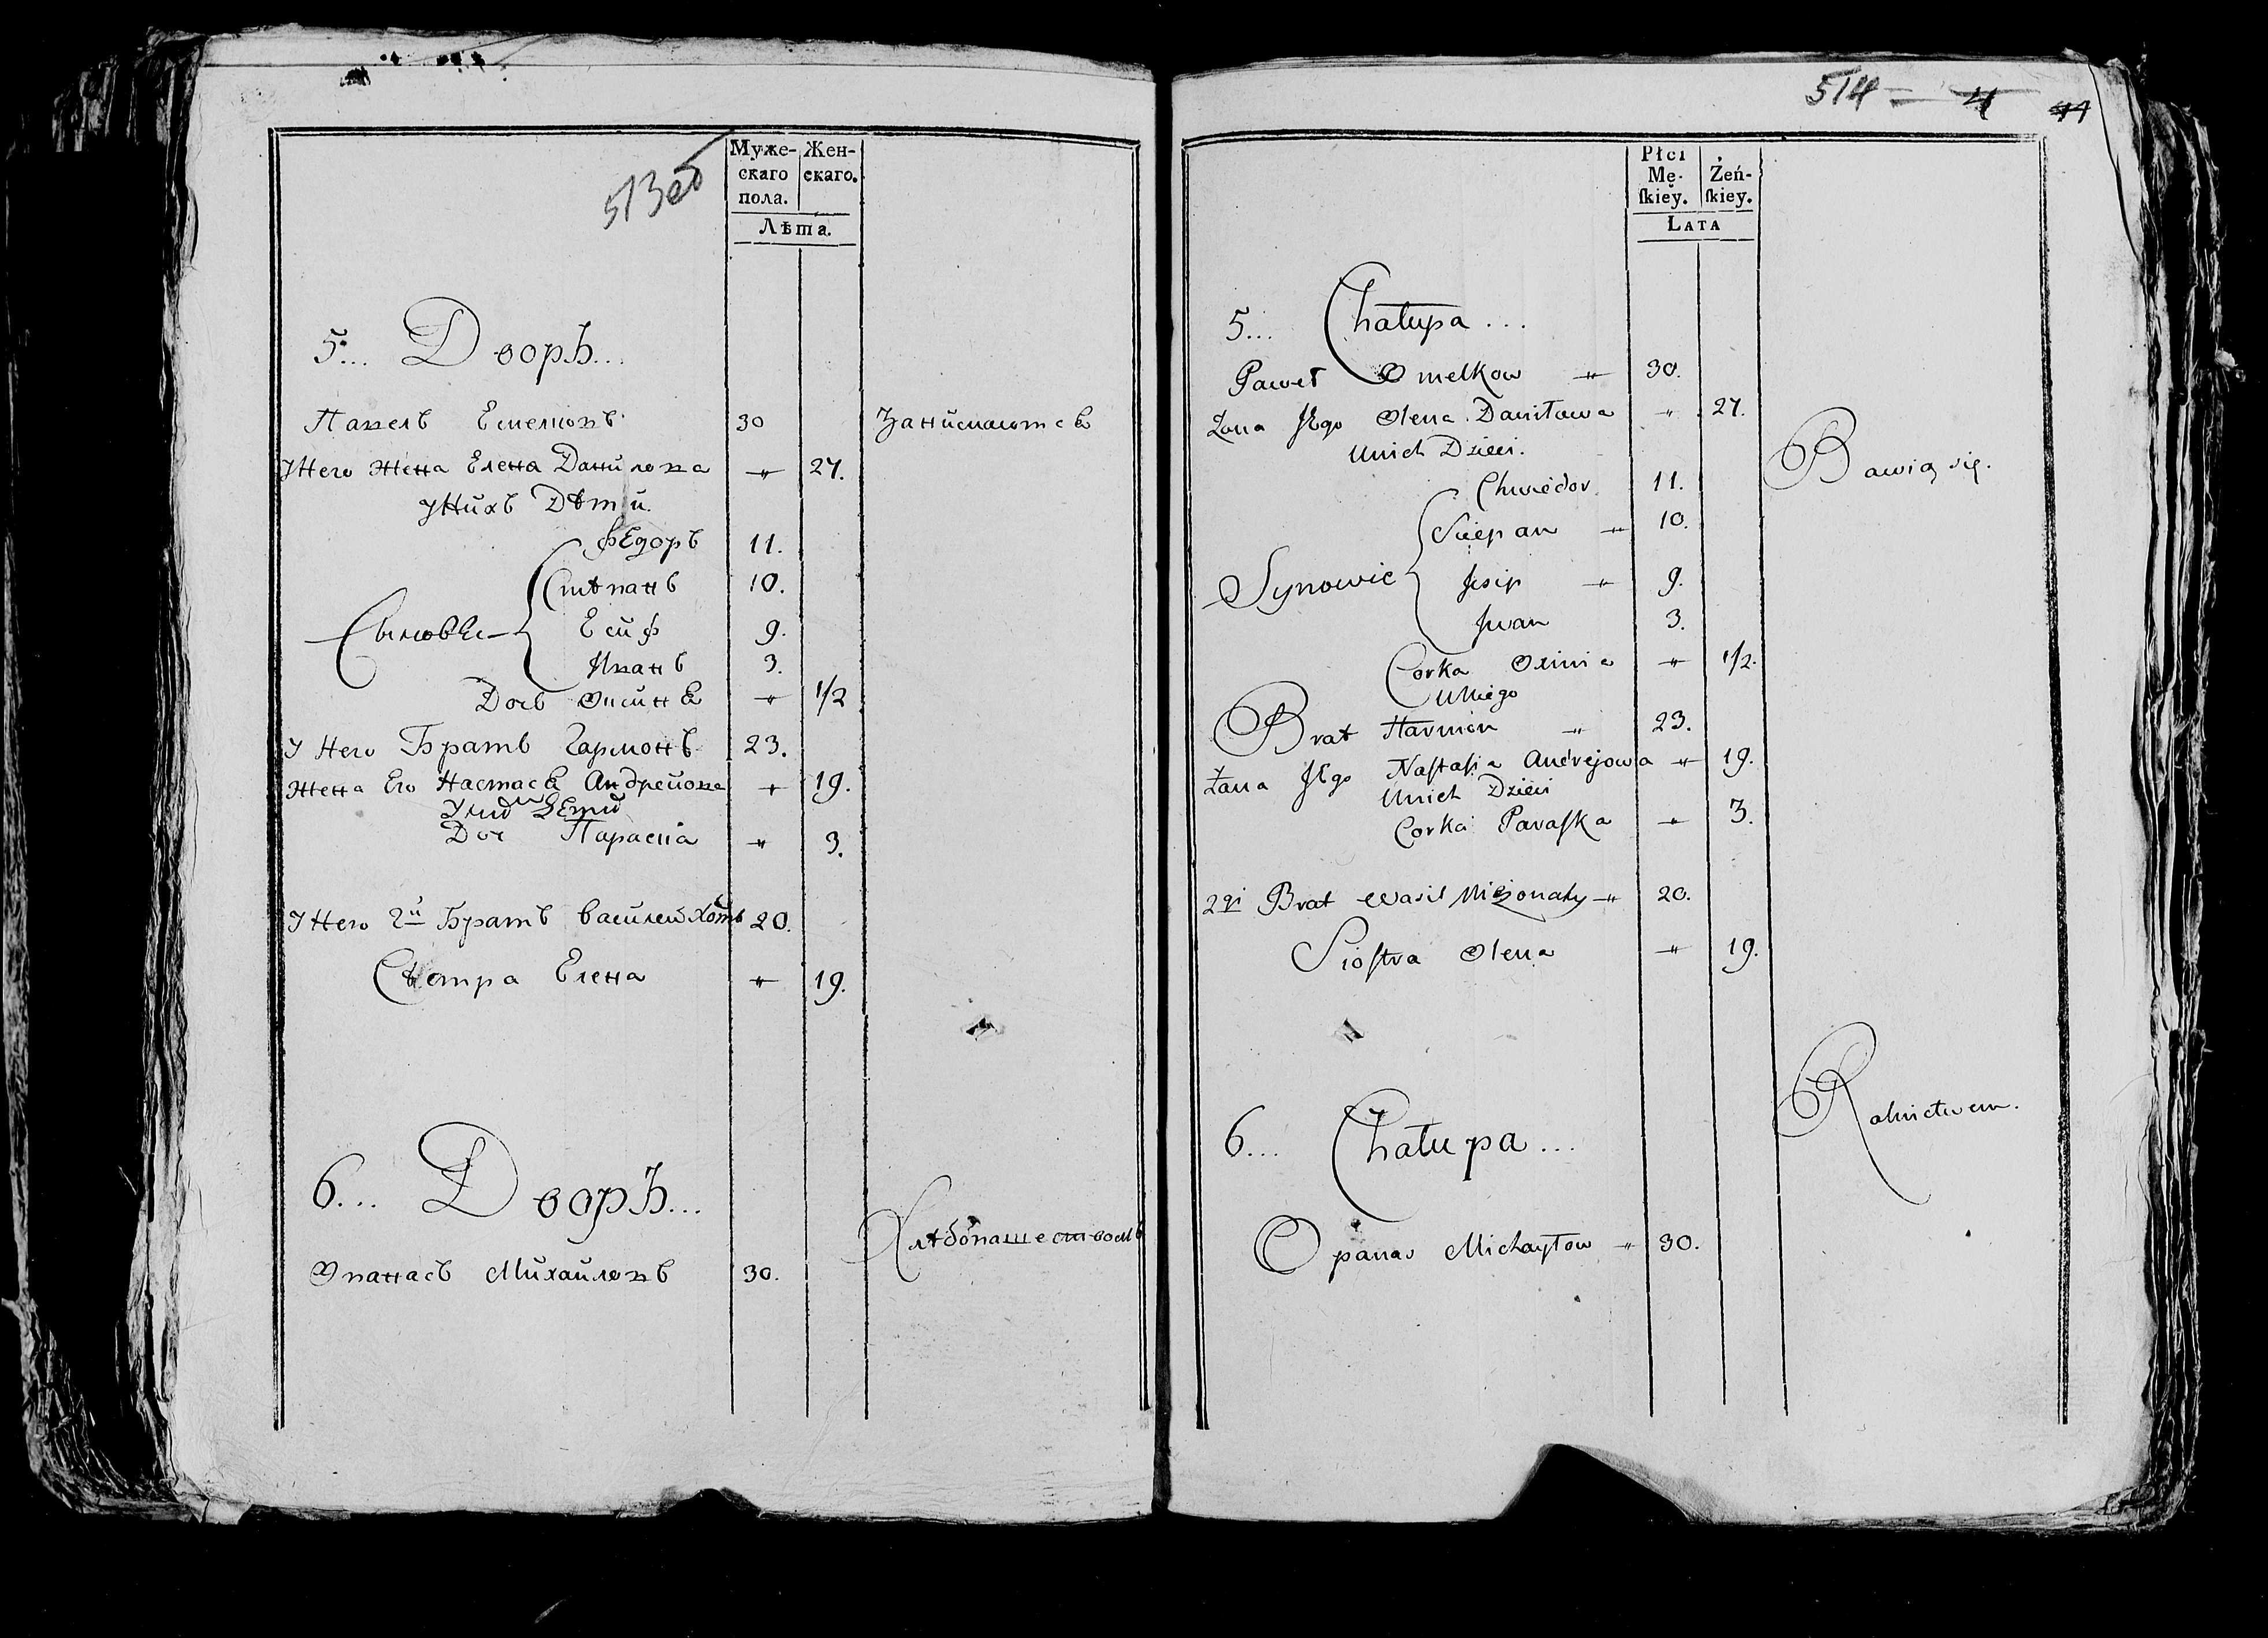 513об
Муже-
скаго
пола.
Жен-
скаго.
Лѣта.
5... Дворъ...
Павелъ Емелковъ 30 Занимаютсѧ
У Него Жена Елена Данилова " 27.
У Нихъ Дѣти.
Федоръ 11.
Стѣпанъ 10.
Сыновѣ Есиф 9.
Иванъ 3.
Дочь Оксинѧ " 1/2
У Него Братъ Гармонъ 23.
Жена Его Настасѧ Андреиова " 19.
У них дети
Доч Параска " 3.
У Него 2й Братъ Василеи 20.
Сѣстра Елена " 19.
6... Дворъ...
Хлѣбопашествомъ
Опанасъ Михаиловъ 30.
514 = 4 44
Płci
Mę-
ſkiey.
Żeń-
ſkiey.
LATA
5... Chałupa...
Paweł Omelkow " 30.
Żona Jego Olena Daniłowa " 27.
Unich Dzieci.
Bawią się.
Chwiedor 11.
Sciepan " 10.
Synowie Josip " 9.
Jwan 3.
Corka Oxinia " 1/2.
U Niego
Brat Harmon " 23.
Żana Jego Naſtaſia Andrejowa " 19.
Unich Dzieci
Corka Paraſka " 3.
2gi Brat Wasil Nieżonaty " 20.
Sioſtra Olena " 19.
Rolnictwem.
6... Chałupa...
Opanas Michayłow " 30.